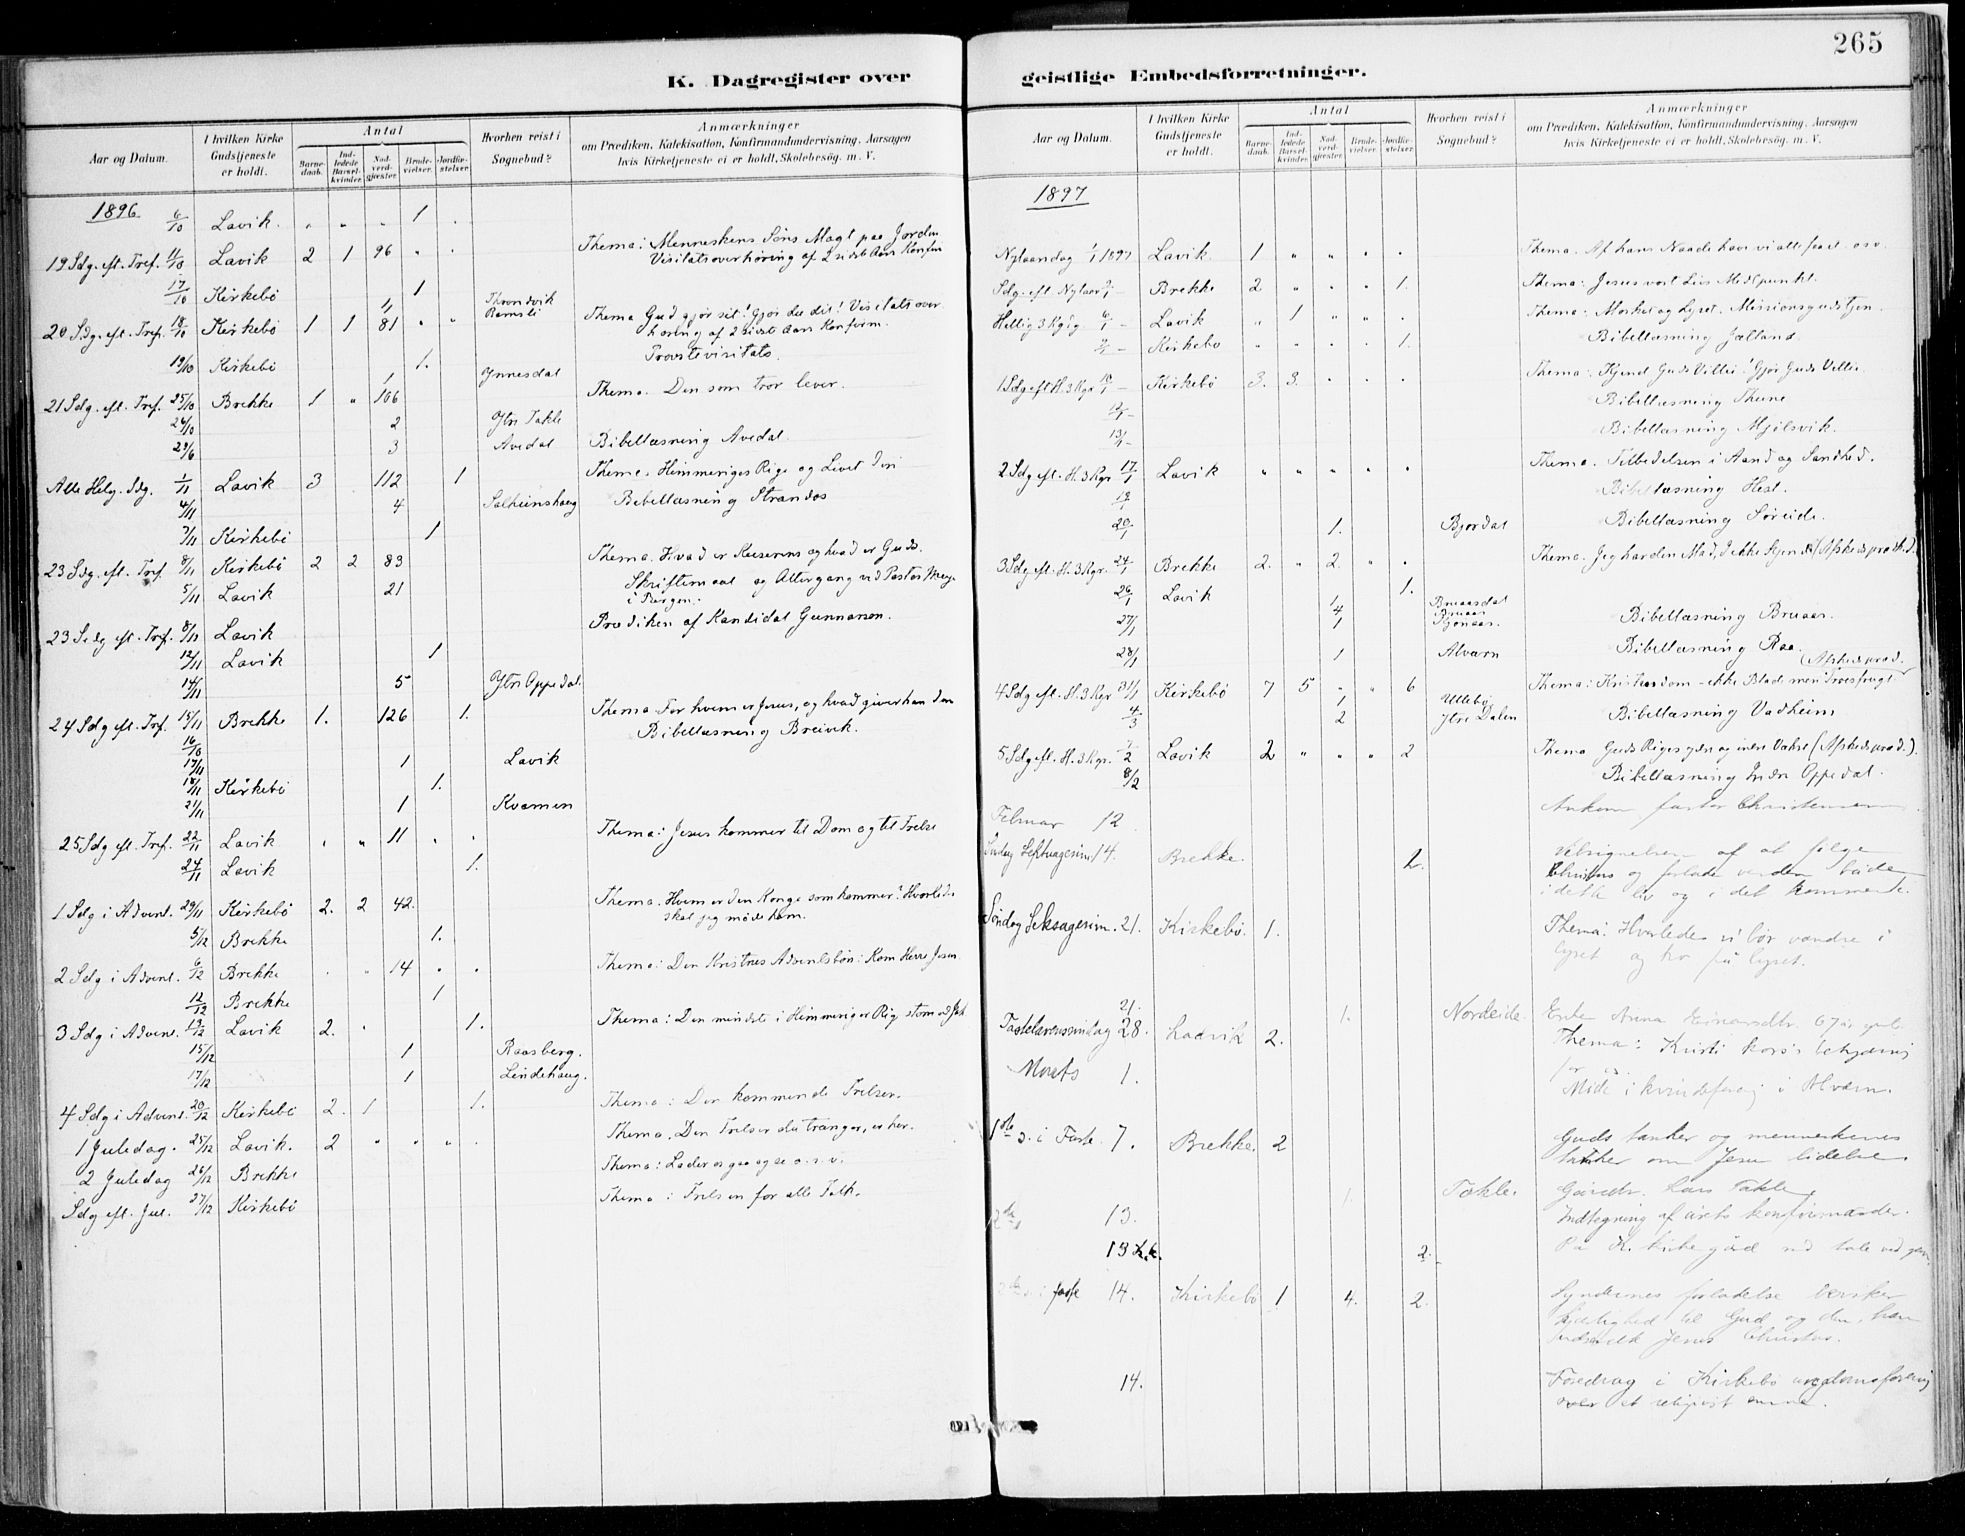 265
K. Dagregister over
Aar og Datum.
I hvilken Kirke Gudstjeneste er holdt.
Antal
Barne- daab.
Ind- ledede Barsel- kvinder.
Nad- verd- gjæster.
Brude- vielser.
Jordfæ- stelser.
Hvorhen reist i Sognebud?
Anmærkninger
om Prædiken, Katekisation, Konfirmandundervisning, Aarsagen
hvis Kirketjeneste ei er holdt, Skolebesög. m. V.
1896 6/10 Lavik. " " " 1 .
19 Sdg. eft. Tref. 11/10 Lavik 2 1 96 " " Thema: Menneskens Søns Magt paa Jorden
Visitatsoverhøring af 2 sidste Aars Konfirm
17/10 Kirkebö 1
Throndvik
20 Sdg. eft. Tref. 18/10 Kirkebö 1 1 81 " " Ramsli Thema Gud gjør sit! Gjør du dit! Visitatsover
høring af 2 sidste Aars Konfirm.
Provstevisitats.
19/10 Kirkebö 1.
1 Ynnesdal
21 Sdg. eft. Tref. 25/10 Brekke 1 " 106 Thema. Den som tror lever.
26/10 2 Ytri Takle
3 Avedal Bibellæsning Avedal.
Alle Helg. Sdg. 1/11 Lavik 3 112 1 Thema. Himmeriges Rige og Livet deri
4/11 4 Solheimshaug Bibellæsning Strandos
7/11 Kirkebö 1
23 Sdg. eft. Tref. 8/11 Kirkebö 2 2 83 Thema. Hvad er Keiserens og hvad er Guds.
5/11 Lavik 21 Skriftemaal og Altergang ved Pastor
i Bergen.
23 Sdg eft. Tref. 8/11 Lavik Prædiken af Kandidat Gunnarson.
12/11 Lavik 1
14/11 5 Ytri Oppedal.
24 Sdg eft. Tref. 15/11 Brekke 1. 126 1. Thema For hvem er Jesus, og hvad giver han dem
16/10 Bibellæsning Breivik.
17/11 1 Lavik
18/11 Kirkebö 1.
21/11 1 Kvamen
25 Sdg eft. Tref. 22/11 Lavik . " 11 . . Thema: Jesus kommer til Dom og til Frelse
24/11 Lavik 1.
1 Sdg i Advent. 29/11 Kirkebö 2. 2 42. Thema. Hvem er den Konge som kommer? Hvorledes
skal jeg möde ham.
5/12 Brekke 1.
2 Sdg i Advent. 6/12 Brekke . " 14 . . Thema: Den Kristnes Adventsbön: Kom Herre Jesu
12/12 Brekke 1
3 Sdg i Advent. 13/12 Lavik 2. " 1. Thema: Den mindste i Himmeriges Rig
15/12 1 Raasberg.
17/12 1 Lindehaug.
4 Sdg i Advent. 20/12 Kirkebö 2. 1 1. Thema: Den kommende Frelser.
1 Juledag. 25/12 Lavik. 2 " " " . Thema. Den Frelser du trænger, er her.
2 Juledag 26/12 Brekke Thema: Lader os gaa og se o. s. v.
Sdg eft. Jul. 27/12 Kirkebö Thema: Frelsen for alle Folk.
geistlige Embedsforretninger.
Aar og Datum.
I hvilken Kirke Gudstjeneste er holdt.
Antal
Barne- daab.
Ind- ledede Barsel- kvinder.
Nad- verd- gjæster.
Brude- vielser.
Jordfæ- stelser.
Hvorhen reist i Sognebud?
Anmærkninger
om Prædiken, Katekisation, Konfirmandundervisning, Aarsagen
hvis Kirketjeneste ei er holdt, Skolebesög. m. V.
1897
Nytaarsdag 1/1 1897 Lavik 1 " " " . Thema. Af hans Naade have vi alle faaet osv.
Sdg. eft Nytaar 3/1 - Brekke 2 " " " 1. Thema: Jesus vort Livs Midtpunkt.
Hellig 3 Kg dg 6/1 - Lavik " 1 " " . Thema: Mörket og Lyset. Missionsgudstjen.
- Kirkebö " " " " 1. Bibellæsning
1 Sdg eft H. 3 Kgr 10/1 - Kirkebö 3. 3. " . . Thema: Kjend Guds Villie! Gjör Guds Villie.
12/1 - Bibellæsning Thune
13/1 - Bibellæsning Mjölsvik.
2 Sdg eft. H. 3 Kgr 17/1 Lavik " " " " " Thema. Tilbedelsen i Aand og Sandhed.
19/1 Bibellæsning Hest.
20/1 1. Bjordal Bibellæsning Söreide.
3 Sdg eft. H. 3 Kgr. 24/1 Brekke 2. " 2. " . Thema: Jeg har den Mad, I ikke kjende (Afskedspræd.)
26/1 Lavik 1.
1 Bruasdal
27/1 4 Bruaas Bibellæsning Bruaas.
1
28/1 1 Alværn Bibellæsning Raa.
(Afskedspræd.
4 Sdg eft. H. 3 Kgr 31/1 Kirkebö 7 5 " " 6 Thema: Kristendom - ikke Blade men Troesfrugt
1 Ullebö
2 Ytre Dalen Bibellæsning Vadheim
5 Sdg eft. H. 3 Kgr. 7/2 Lavik 2 " " " 2 Thema Guds Riges ydre og indre Vækst (Afskedspræd.).
8/2 Bibellæsning Indre Oppedal.
Februar 12. Ankom pastor Christensen
Söndag Septuagesima 14. Brekke. 2. Velsignelsen af at følge
Christus og forlade verden både
i dette liv og i det kommende.
Söndag Seksagesim. 21. Kirkebö. 1. Thema: Hvorledes vi bør vandre i
lyset og tro på lyset.
21. 1. Nordeide. Enke Anna Einarsdtr. 67 år gml.
Fastelavnssøndag 28. Ladvik 2. Thema: Kristi kors's betydning
for os.
Marts 1. Möde i kvindeforenig i Alværn.
1ste s. i Faste. 7. Brekke. 2 Guds tanker og menneskenes
tanker om Jesu lidelse.
1. Takle. Gårdbr. Lars Takle.
13. Indtegning af årets konfirmander.
13 2. På K. kirkegård
2den s. i faste 14. Kirkebö 1 4. 2. Syndernes forladelse virker
kjærlighed til Gud og den, han
udsendte Jesus Christus.
14. Foredrag i Kirkebö ungdomsforening
over et religiøst emne.